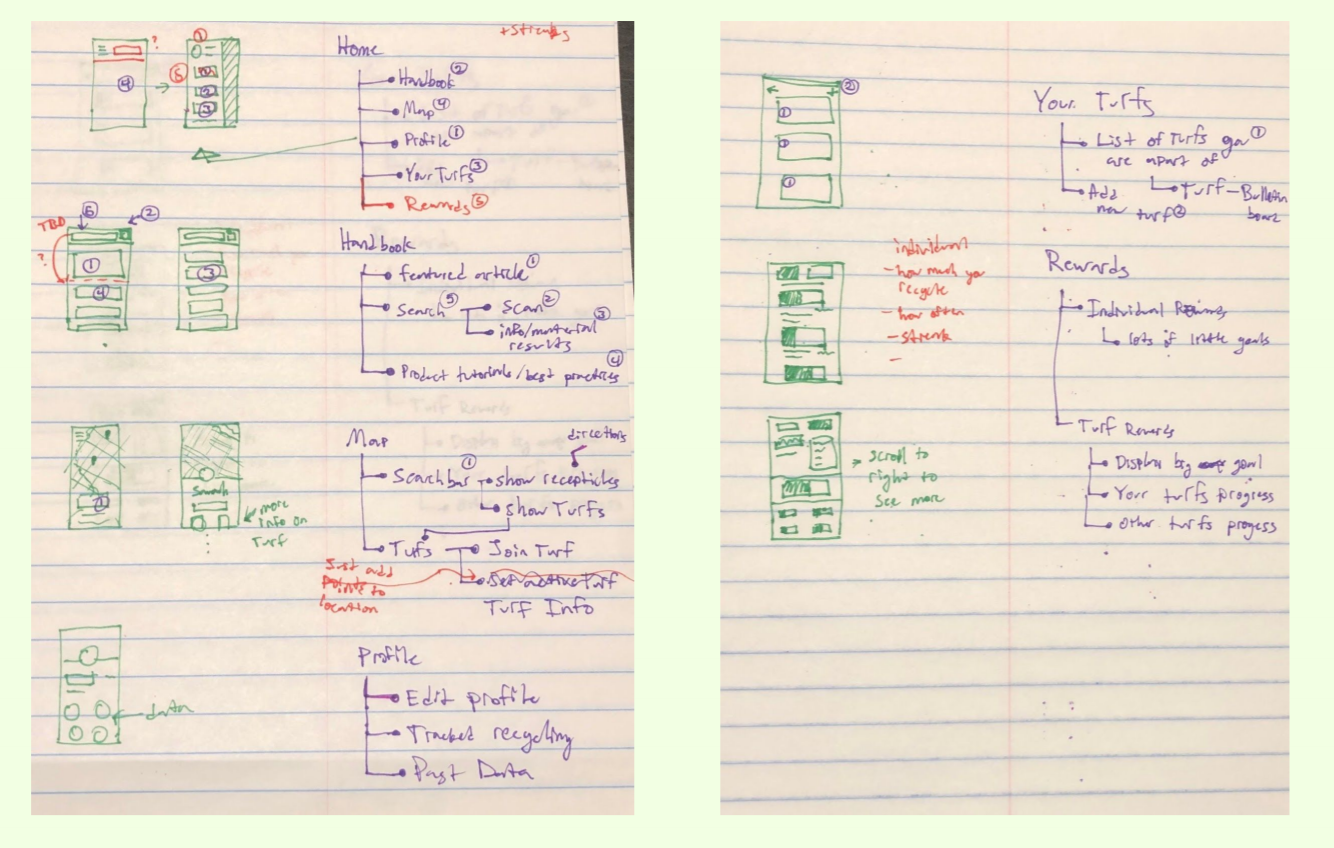 + Streaks
Home
Handbook ②
Map ④
Profile ①
Your Turfs ③
Rewards ⑤
?
④
①
⑤
②
③
Handbook
featured article ①
Search ⑤
Scan ②
info/material ③
results
Product tutorials/best practices ④
TBD
?
⑤
②
①
④
③
Map
directions
Searchbar ①
show recepticles
show Turfs
Tufs
Join Turf
Set active Turf
Turf Info
Just add
Points to
location
①
Search
more
info on
Turf
Profile
Edit profile
Tracked recycling
Past Data
data
②
①
①
①
Your Turfs
List of Turfs you ①
are apart of
Turf - Bulletin
board
Add
new turf ②
individual
- how much you
recycle
- how often
- streak
-
Rewards
Individual
lots of little goals
Turf Rewards
Display big goal
Your turfs progress
Other turfs progess
→ scroll to
right to
see more